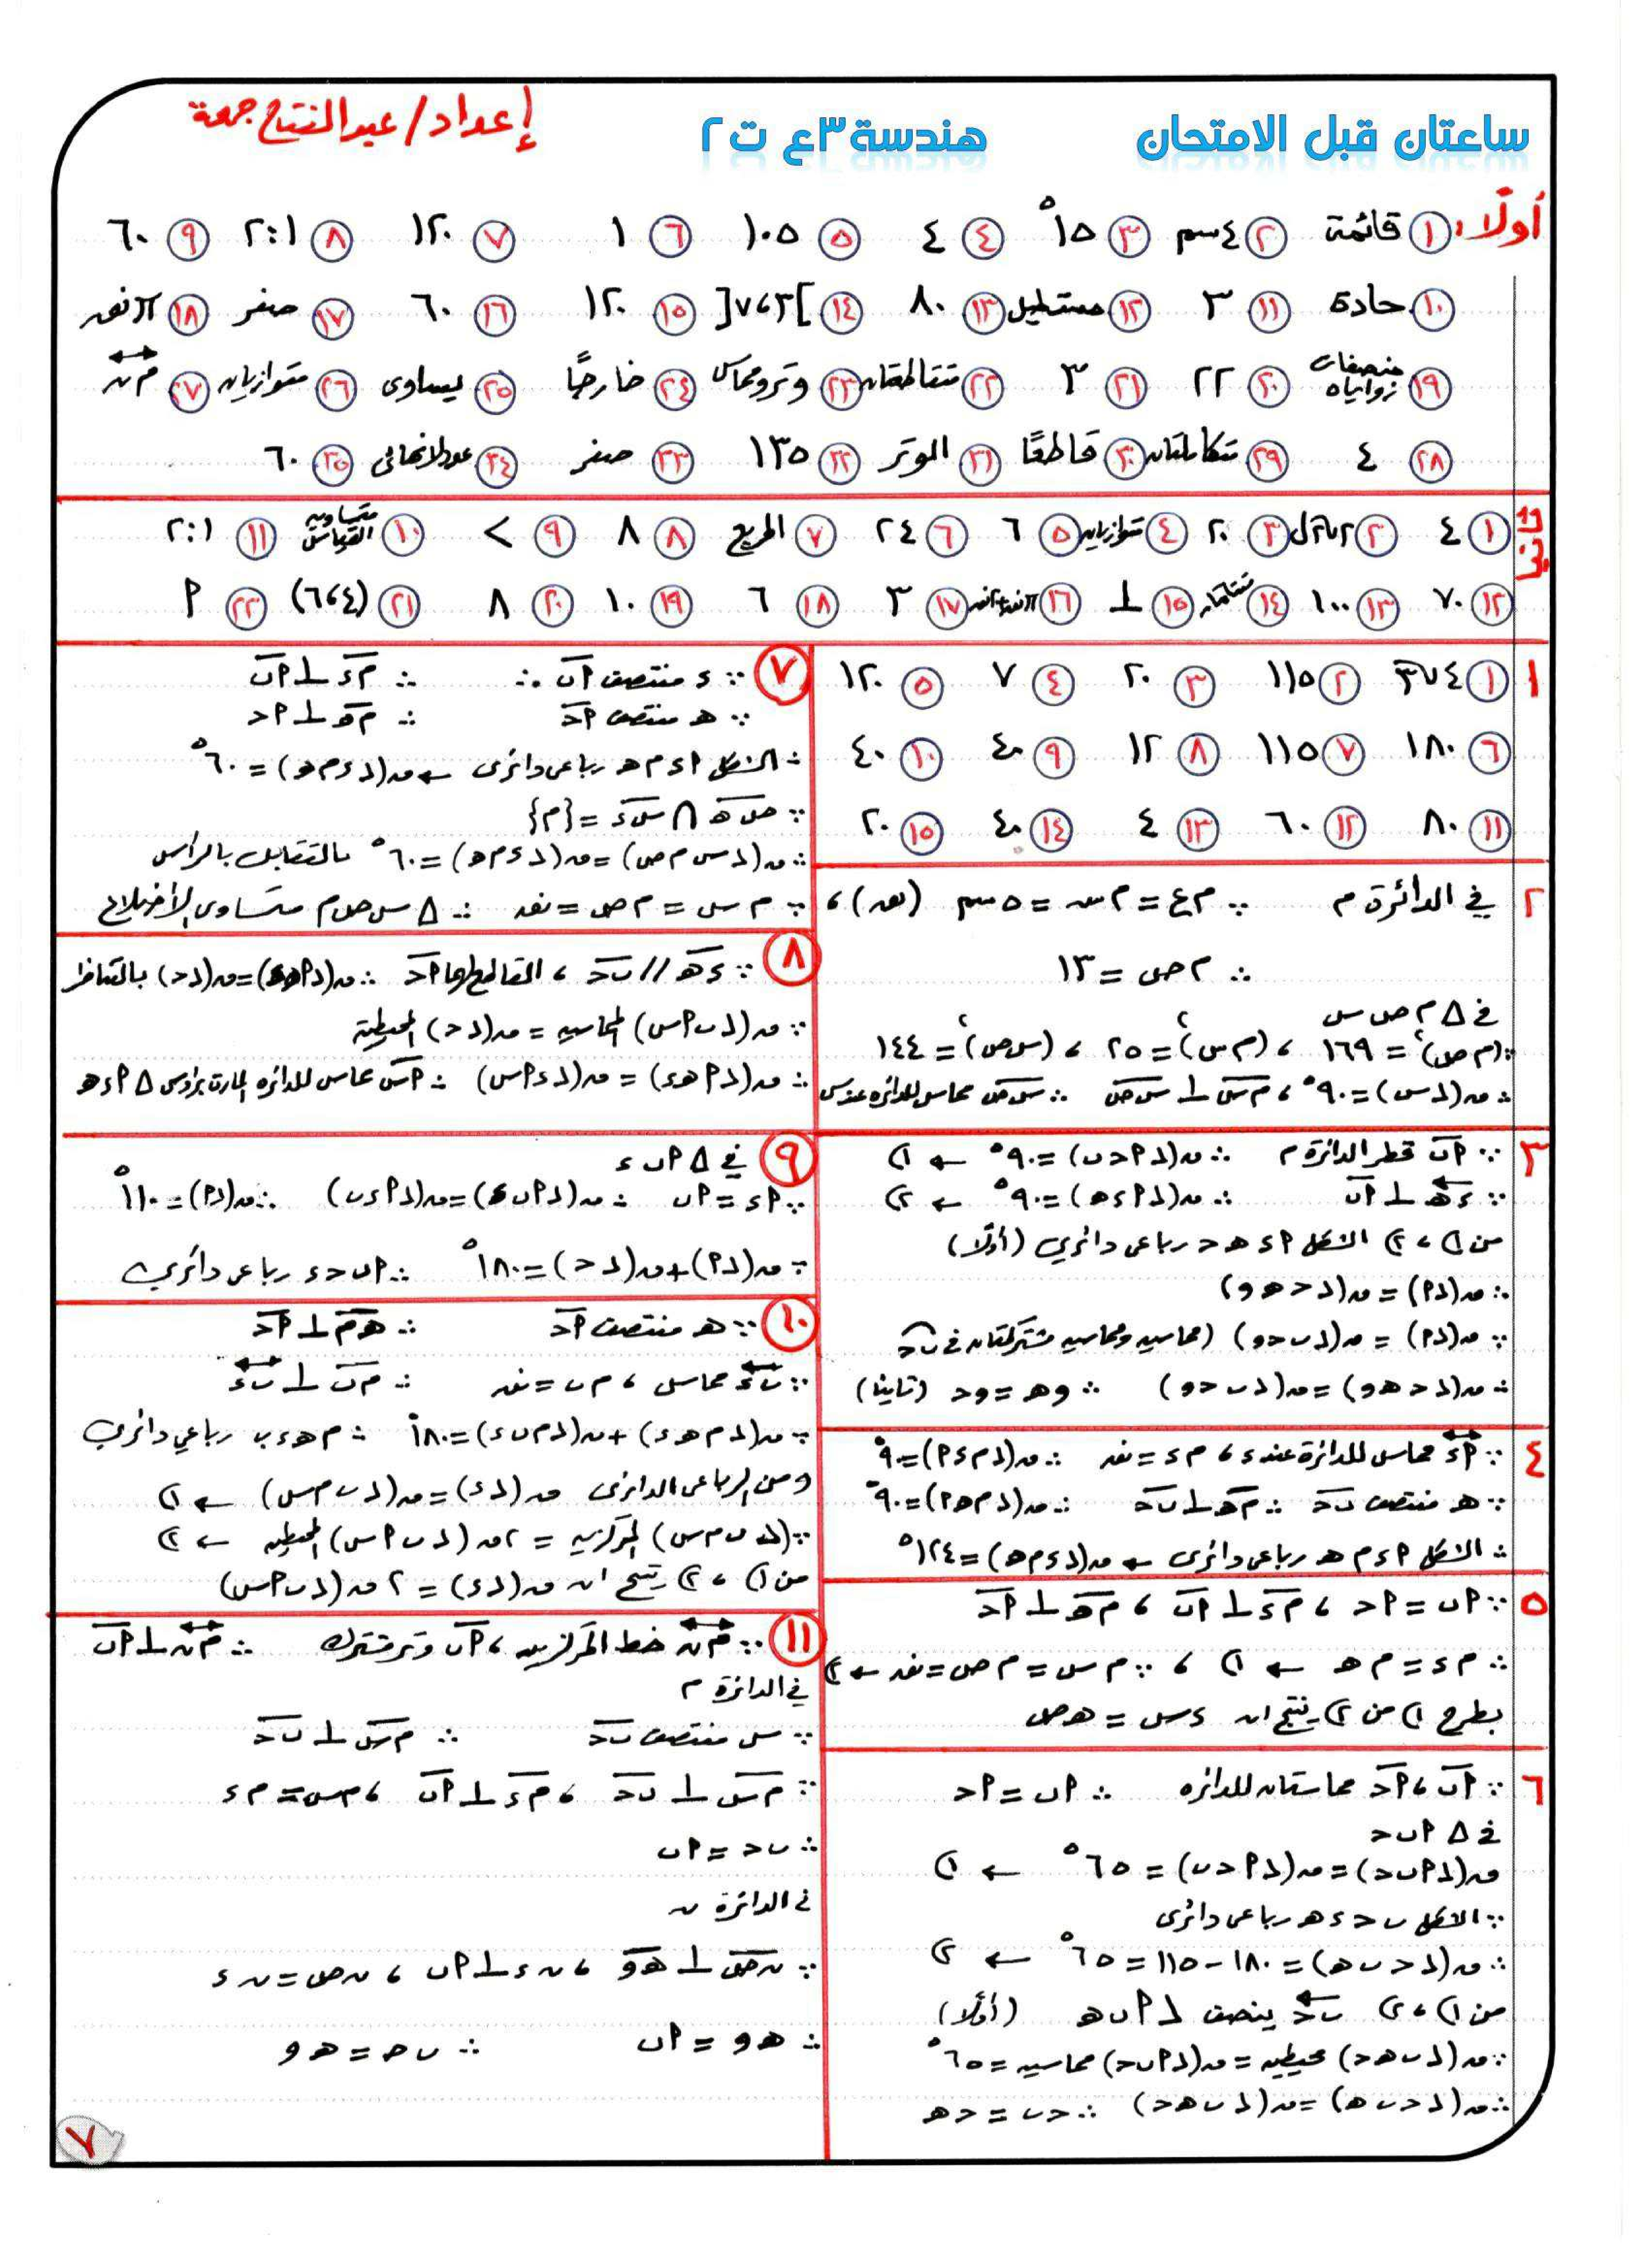 ساعتان قبل الامتحان هندسة ٣ع ت٢ إعداد/ عبد الفتاح جمعة
أولًا: ١ قائمة ٢ ٤سم ٣ ١٥° ٤ ٤ ٥ ١٠٥ ٦ ١ ٧ ١٢٠ ٨ ٢:١ ٩ ٦٠
١٠ حادة ١١ ٣ ١٢ مستطيل ١٣ ٨٠ ١٤ ]٣،٧[ ١٥ ١٢٠ ١٦ ٦٠ ١٧ صفر ١٨ π نق
١٩ منصفات زواياه ٢٠ ٢٢ ٢١ ٣ ٢٢ متقاطعتان ٢٣ وتر ومماس ٢٤ خارجيًا ٢٥ يساوى ٢٦ متوازيان ٢٧ م ن
٢٨ ٤ ٢٩ متكاملتان ٣٠ قاطعًا ٣١ الوتر ٣٢ ١٣٥ ٣٣ صفر ٣٤ عدد لانهائى ٣٥ ٦٠
ثانيًا ١ ٤ ٢ ٣ ٢٠ ٤ متوازيان ٥ ٦ ٦ ٢٤ ٧ المربع ٨ ٨ ٩ > ١٠ متساوية القياس ١١ ٢:١
١٢ ٧٠ ١٣ ١٠٠ ١٤ ١٥ ⊥ ١٦ ١٧ ٣ ١٨ ٦ ١٩ ١٠ ٢٠ ٨ ٢١ (٤،٦) ٢٢ ٢٢ م
١ ١ ٤√٣ ٢ ١١٥ ٣ ٢٠ ٤ ٧ ٥ ١٢٠
٦ ١٨٠ ٧ ١١٥ ٨ ١٢ ٩ ٤٠ ١٠ ٤٠
١١ ٨٠ ١٢ ٦٠ ١٣ ٤ ١٤ ٤٠ ١٥ ٢٠
٢ في الدائرة م ∵ م ع = م س = ٥ سم (نق)،
∴ م ص = ١٣
في Δ م ص س
∵ (م ص)٢ = ١٦٩ ، (م س)٢ = ٢٥ ، (س ص)٢ = ١٤٤
∴ ق(∠س) = ٩٠° ، م س ⊥ س ص ∴ س ص مماس للدائرة عند س
٣ ∵ أب قطر الدائرة م ∴ ق(∠أحب) = ٩٠° ← ①
∵ ءه ⊥ أب ∴ ق(∠أءه) = ٩٠° ← ②
من ① ، ② الشكل أ ء ه ح رباعى دائري (أولًا)
∴ ق(∠أ) = ق(∠ح ه و)
∵ ق(∠أ) = ق(∠ب ح و) (مماسيه ومحاسيه مشتركتان فى ب ح
∴ ق(∠ح ه و) = ق(∠ب ح و) ∴ و ه = و ح (ثانيا)
٤ ∵ أء مماس للدائرة عند ء ، م ء = نق ∴ ق(∠م ء أ) = ٩٠°
∵ ه منتصف ب ح ∴ م ه ⊥ ب ح ∴ ق(∠م ه أ) = ٩٠°
∴ الشكل أ ء م ه رباعى دائرى ← ق(∠ء م ه) = ١٢٤°
٥ ∵ أب = أح ، م ء ⊥ أب ، م ه ⊥ أح
∴ م ء = م ه ← ① ، ∵ م س = م ص = نق ← ②
بطرح ① من ② ينتج ان ء س = ه ص
٦ ∵ أب ، أح مماستان للدائره ∴ أب = أح
فى Δ أ ب ح
ق(∠أ ب ح) = ق(∠أ ح ب) = ٦٥° ← ①
∵ الشكل ب ح ء ه رباعى دائرى
∴ ق(∠ح ب ه) = ١٨٠ - ١١٥ = ٦٥° ← ②
من ① ، ② ب ح ينصف ∠ أ ب ه (أولًا)
∵ ق(∠ب ه ح) محيطيه = ق(∠أ ب ح) مماسيه = ٦٥°
∴ ق(∠ح ب ه) = ق(∠ب ه ح) ∴ ح ب = ح ه
٧ ∵ ء منتصف أب ∴ ∴ م ء ⊥ أب
∵ ه منتصف أح ∴ م ه ⊥ أح
∴ الشكل أ ء م ه رباعى دائرى ← ق(∠ء م ه) = ٦٠°
∵ ص ه ∩ س ء = {م}
∴ ق(∠س م ص) = ق(∠ء م ه) = ٦٠° بالتقابل بالراس
∵ م س = م ص = نق ∴ Δ س ص م متساوى الأضلاع
٨ ∵ ء ه // ب ح ، القاطع لهما أح ∴ ق(∠أ ه ء) = ق(∠ح) بالتناظر
∵ ق(∠ب أ س) المماسيه = ق(∠ح) المحيطية
∴ ق(∠أ ه ء) = ق(∠ء أ س) ∴ أس مماس للدائره المارة برؤوس Δ أ ء ه
٩ في Δ أ ب ء
∵ أ ء = أ ب ∴ ق(∠أ ب ء) = ق(∠أ ء ب) ∴ ق(∠أ) = ١١٠°
∵ ق(∠أ) + ق(∠ح) = ١٨٠° ∴ أ ب ح ء رباعى دائري
١٠ ∵ ه منتصف أح ∴ ه م ⊥ أح
∵ ب ء مماس ، م ب = نق ∴ م ب ⊥ ب ء
∵ ق(∠م ه ء) + ق(∠م ب ء) = ١٨٠° ∴ م ه ء ب رباعي دائري
ومن الرباعى الدائرى ق(∠ء) = ق(∠ب م س) ← ①
∵ (∠ب م س) المركزيه = ٢ ق(∠ب أ س) المحيطيه ← ②
من ① ، ② ينتج ان ق(∠ء) = ٢ ق(∠ب أ س)
١١ ∵ م ن خط المركزين ، أب وتر مشترك ∴ م ن ⊥ أب
في الدائرة م
∵ س منتصف ب ح ∴ م س ⊥ ب ح
∵ م س ⊥ ب ح ، م ء ⊥ أب ، م س = م ء
∴ ب ح = أ ب
فى الدائرة ن
∵ ن ص ⊥ ه و ، ن ء ⊥ أ ب ، ن ص = ن ء
∴ ه و = أ ب ∴ ب ح = ه و
٧